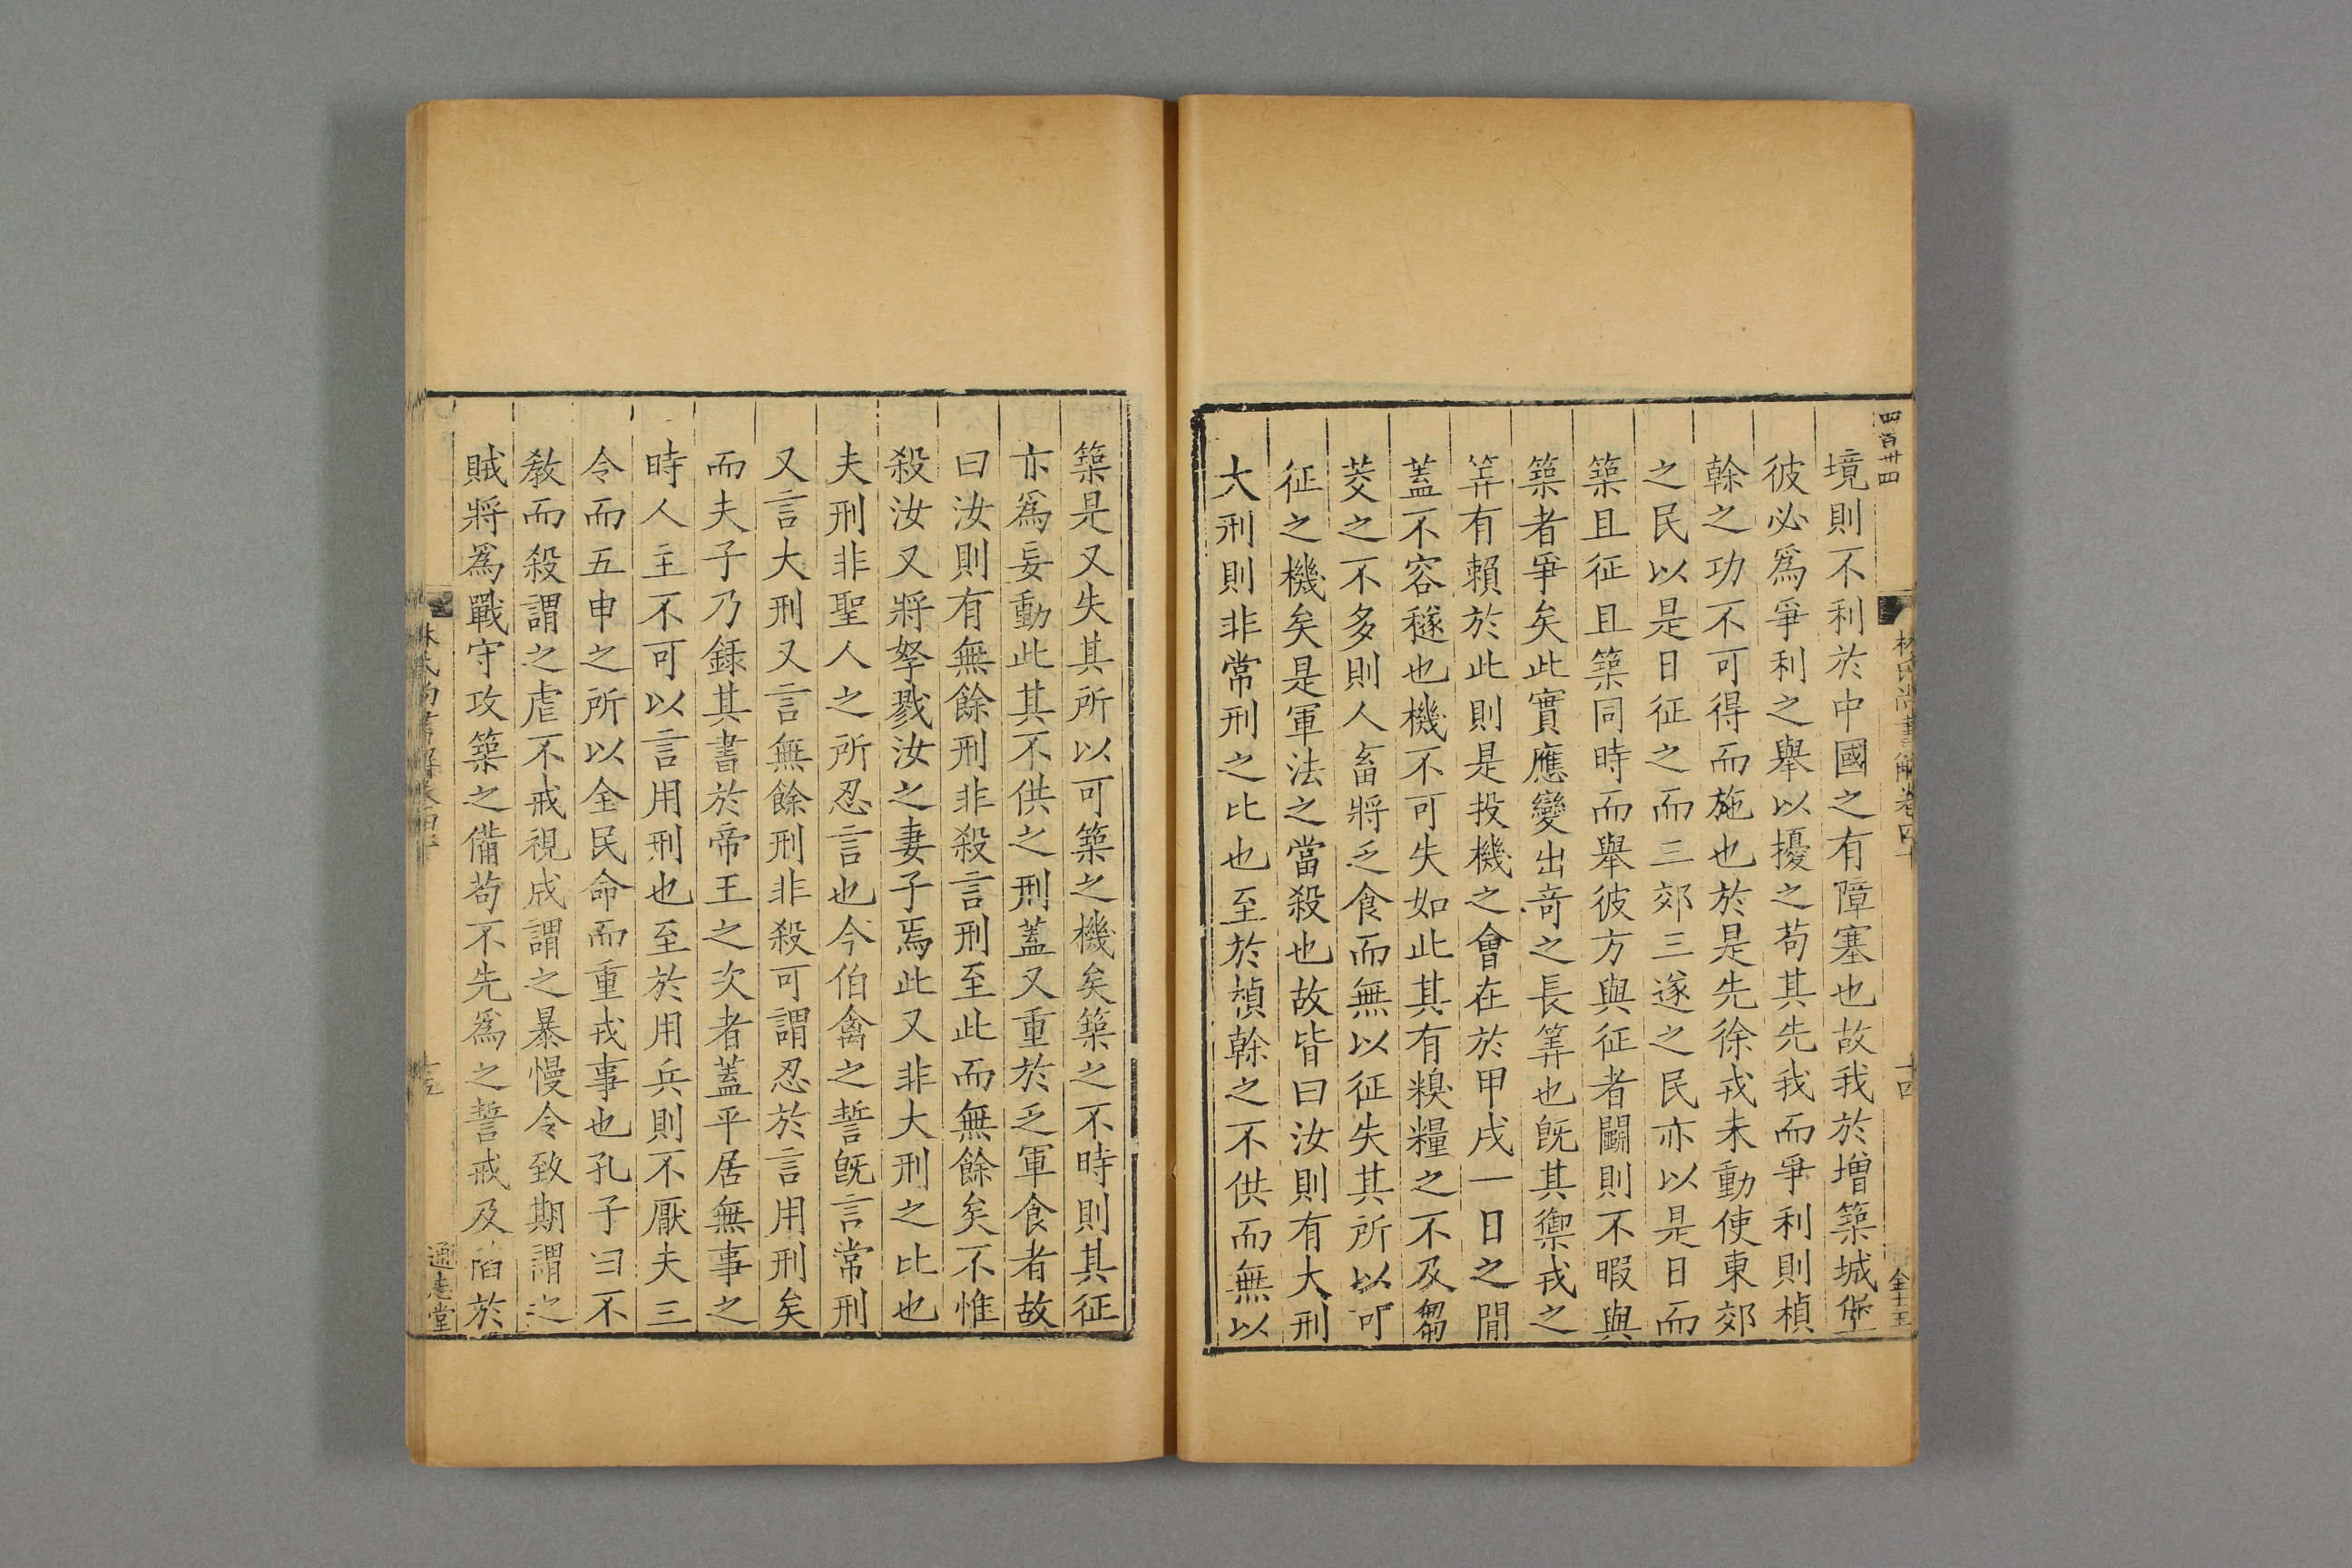 四百廿四
林氏尚書解卷四十
十四
金士玉
境則不利於中國之有障塞也故我於增築城堡
彼必爲爭利之舉以擾之茍其先我而爭利則楨
榦之功不可得而施也於是先徐戎未動使東郊
之民以是日征之而三郊三遂之民亦以是日而
築且征且築同時而舉彼方與征者鬬則不暇與
築者爭矣此實應變出奇之長筭也旣其禦戎之
筭有賴於此則是投機之會在於甲戌一日之間
蓋不容穟也機不可失如此其有糗糧之不及芻
茭之不多則人畜將乏食而無以征失其所以可
征之機矣是軍法之當殺也故皆曰汝則有大刑
大刑則非常刑之比也至於楨榦之不供而無以
築是又失其所以可築之機矣築之不時則其征
亦爲妄動此其不供之刑蓋又重於乏軍食者故
曰汝則有無餘刑非殺言刑至此而無餘矣不惟
殺汝又將孥戮汝之妻子焉此又非大刑之比也
夫刑非聖人之所忍言也今伯禽之誓旣言常刑
又言大刑又言無餘刑非殺可謂忍於言用刑矣
而夫子乃錄其書於帝王之次者蓋平居無事之
時人主不可以言用刑也至於用兵則不厭夫三
令而五申之所以全民命而重戎事也孔子曰不
敎而殺謂之虐不戒視成謂之暴慢令致期謂之
賊將爲戰守攻築之備茍不先爲之誓戒及陷於
林氏尚書解卷四十
十五
通志堂